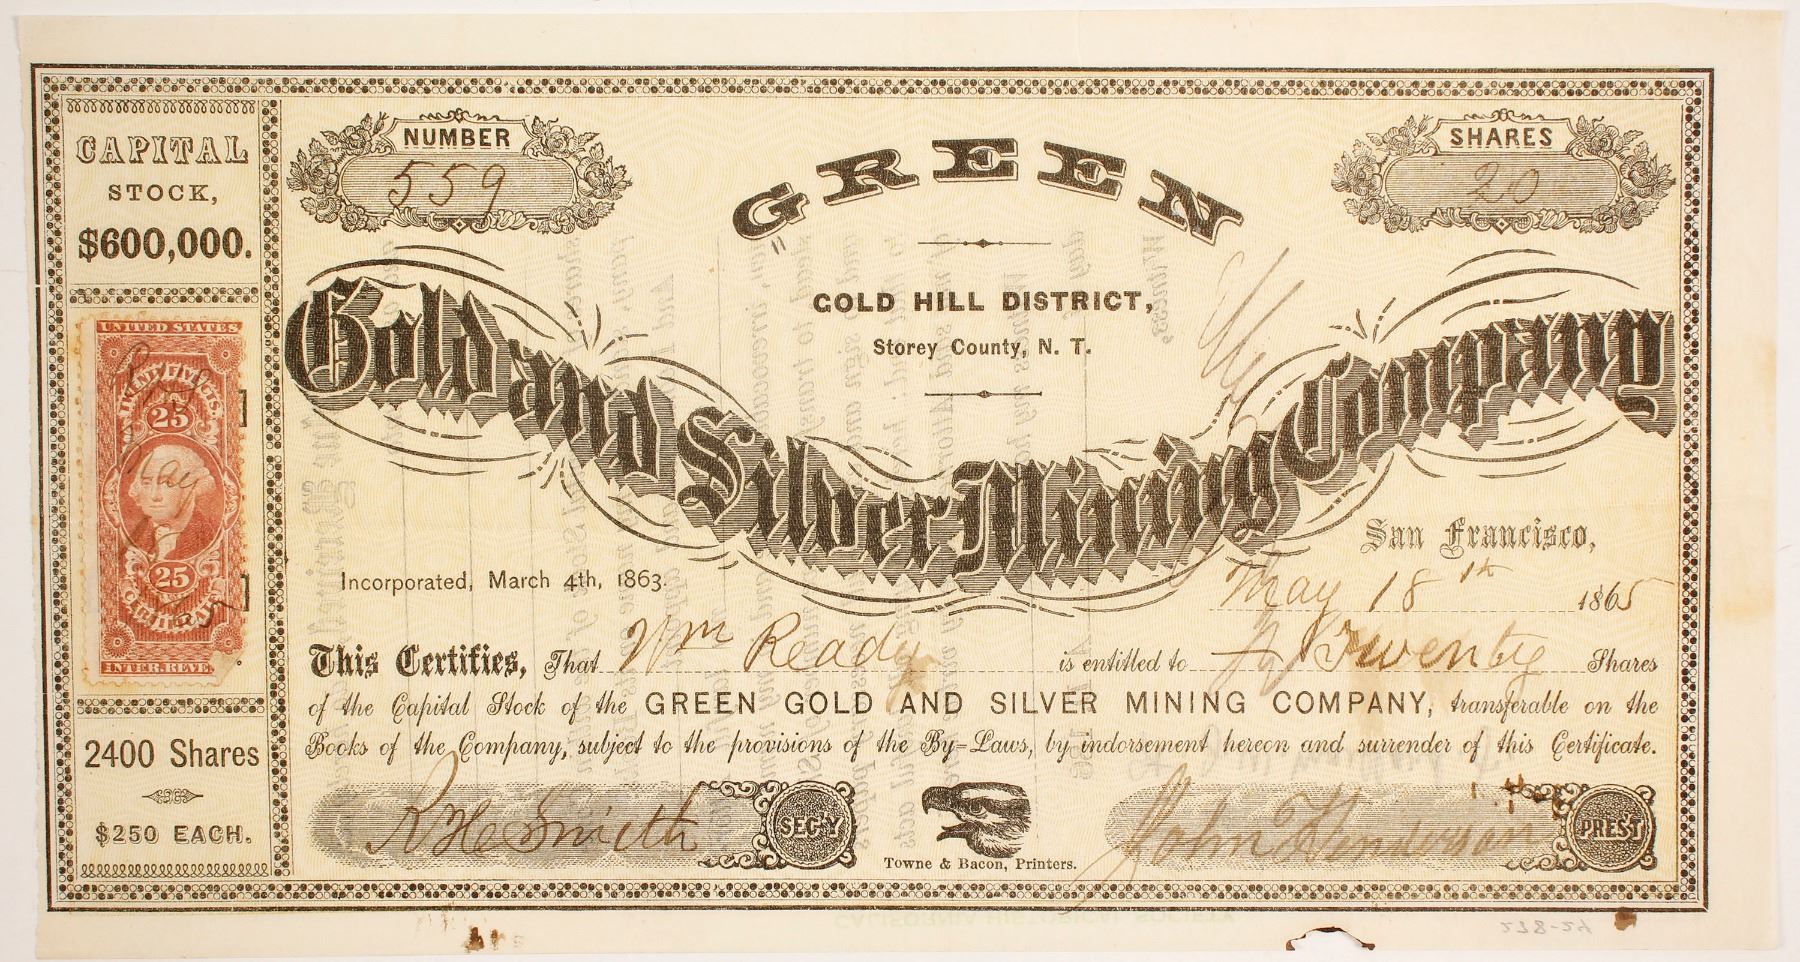 CAPITAL
STOCK,
$600,000.
UNITED STATES
TWENTY FIVE CTS.
25
May
25
INTER. REVE.
2400 Shares
$250 EACH.
NUMBER
559
SHARES
20
GREEN
GOLD HILL DISTRICT,
Storey County, N. T.
Gold and Silver Mining Company
San Francisco,
Incorporated, March 4th, 1863.
May 18th 1865
This Certifies, That Wm Ready is entitled to Twenty Shares
of the Capital Stock of the GREEN GOLD AND SILVER MINING COMPANY, transferable on the
Books of the Company, subject to the provisions of the By-Laws, by indorsement hereon and surrender of this Certificate.
R H Smith SEC'Y
John Henderson PRES'T
Towne & Bacon, Printers.